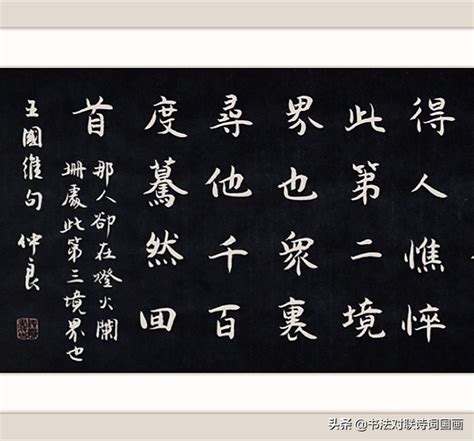 得人憔悴
此第二境
界也衆裏
尋他千百
度驀然回
首
那人卻在燈火闌
珊處此第三境界也
王國維句 仲良
头条 @书法对联诗词国画